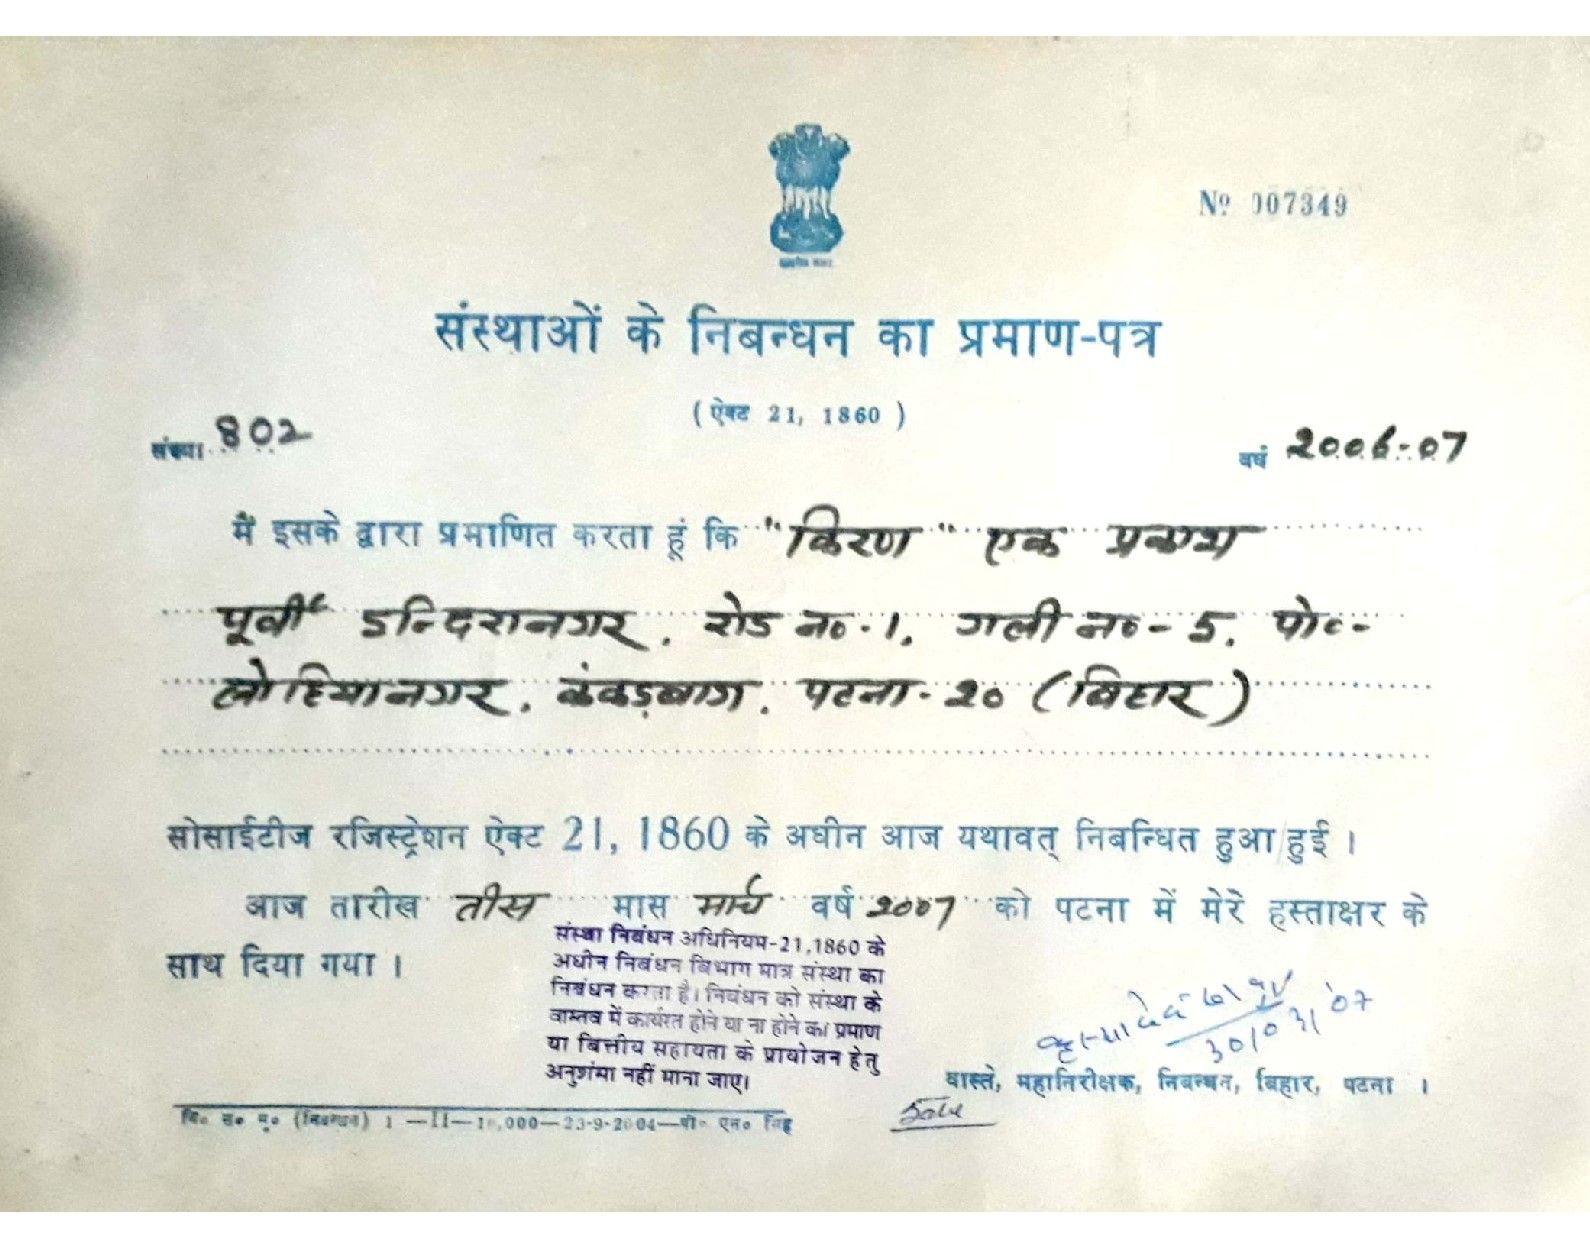 № 007349
संस्थाओं के निबन्धन का प्रमाण-पत्र
( ऐक्ट 21, 1860 )
संख्या 802
वर्ष 2006-07
मैं इसके द्वारा प्रमाणित करता हूं कि "किरण" एक प्रकाश
पूर्वी इन्दिरानगर, रोड न०-1, गली न०-5, पो०-
लोहियानगर, कंकड़बाग, पटना-20 (बिहार)
सोसाईटीज रजिस्ट्रेशन ऐक्ट 21, 1860 के अधीन आज यथावत् निबन्धित हुआ/हुई ।
आज तारीख तीस मास मार्च वर्ष 2007 को पटना में मेरे हस्ताक्षर के
साथ दिया गया ।
संस्था निबंधन अधिनियम-21,1860 के
अधीन निबंधन विभाग मात्र संस्था का
निबंधन करता है। निबंधन को संस्था के
वास्तव में कार्यरत होने या ना होने का प्रमाण
या बित्तीय सहायता के प्रायोजन हेतु
अनुशंसा नहीं माना जाए।
30/03/'07
वास्ते, महानिरीक्षक, निबन्धन, बिहार, पटना ।
बि० स० मु० (निबन्धन) 1—II—10,000—23-9-2004—पी० एन० सिंह